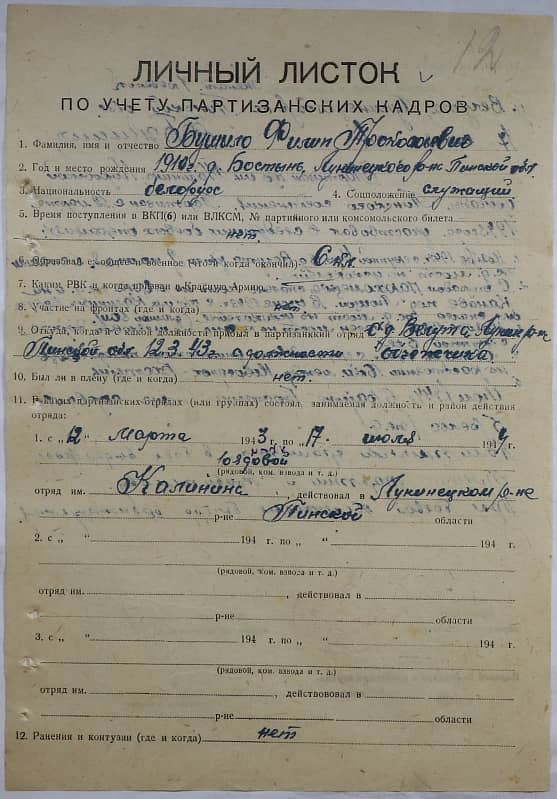 12
ЛИЧНЫЙ ЛИСТОК
ПО УЧЕТУ ПАРТИЗАНСКИХ КАДРОВ
1. Фамилия, имя и отчество Бушило Филип
2. Год и место рождения 1910 г. д. Бостынь, Лунинецкого р-на Пинской обл.
3. Национальность белорус 4. Соцположение служащий
5. Время поступления в ВКП(б) или ВЛКСМ, № партийного или комсомольского билета
нет.
6. Образован. общее и военное (что и когда окончил) 6 кл.
7. Каким РВК и когда призван в Красную Армию —
8. Участие на фронтах (где и когда) нет.
9. Откуда, когда и с какой должности прибыл в партизанский отряд с д. р-на
Пинской обл. 12.3.43г. с должности
10. Был ли в плену (где и когда) нет.
11. В каких партизанских отрядах (или группах) состоял, занимаемая должность и район действия
отряда:
1. с „12“ марта 1943 г. по „17“ июля 1944 г.
(рядовой, ком. взвода и т. д.)
отряд им. Калинина, действовал в Лунинецком р-не
р-не Пинской области
2. с „ “ 194 г. по „ “ 194 г.
(рядовой, ком. взвода и т. д.)
отряд им. , действовал в
р-не области
3. с „ “ 194 г. по „ “ 194 г.
(рядовой, ком. взвода и т. д.)
отряд им. , действововал в
р-не области
12. Ранения и контузии (где и когда) нет